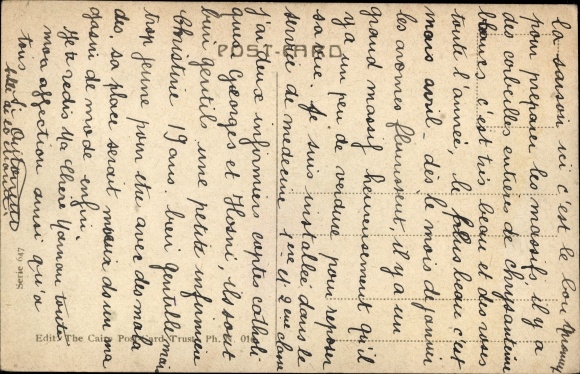 la saison, ici c'est le bon moment
pour préparer les massifs, il y a
des corbeilles entières de chrysantème
blancs c'est très beau et des roses
toute l'année, le plus beau c'est
mars avril - dès le mois de janvier
les aromes fleurissent, il y a un
grand massif heureusement qu'il
y a un peu de verdure pour reposer
sa vue. Je suis installée dans le
service de medecine 1ère et 2ème classe
j'ai deux infirmiers coptes catholi
ques Georges et Hosni, ils sont
bien gentils une petite infirmière
Christine 19 ans. bien gentille mais
trop jeune pour etre avec des mala
des, sa place serait mieux ds un ma
gasin de mode enfin.
Je te redis ma chère Yonnou toute
mon affection ainsi qu'à
ton
POST-CARD
Edit. The Cairo Postcard Trust, Ph.
Serie 647